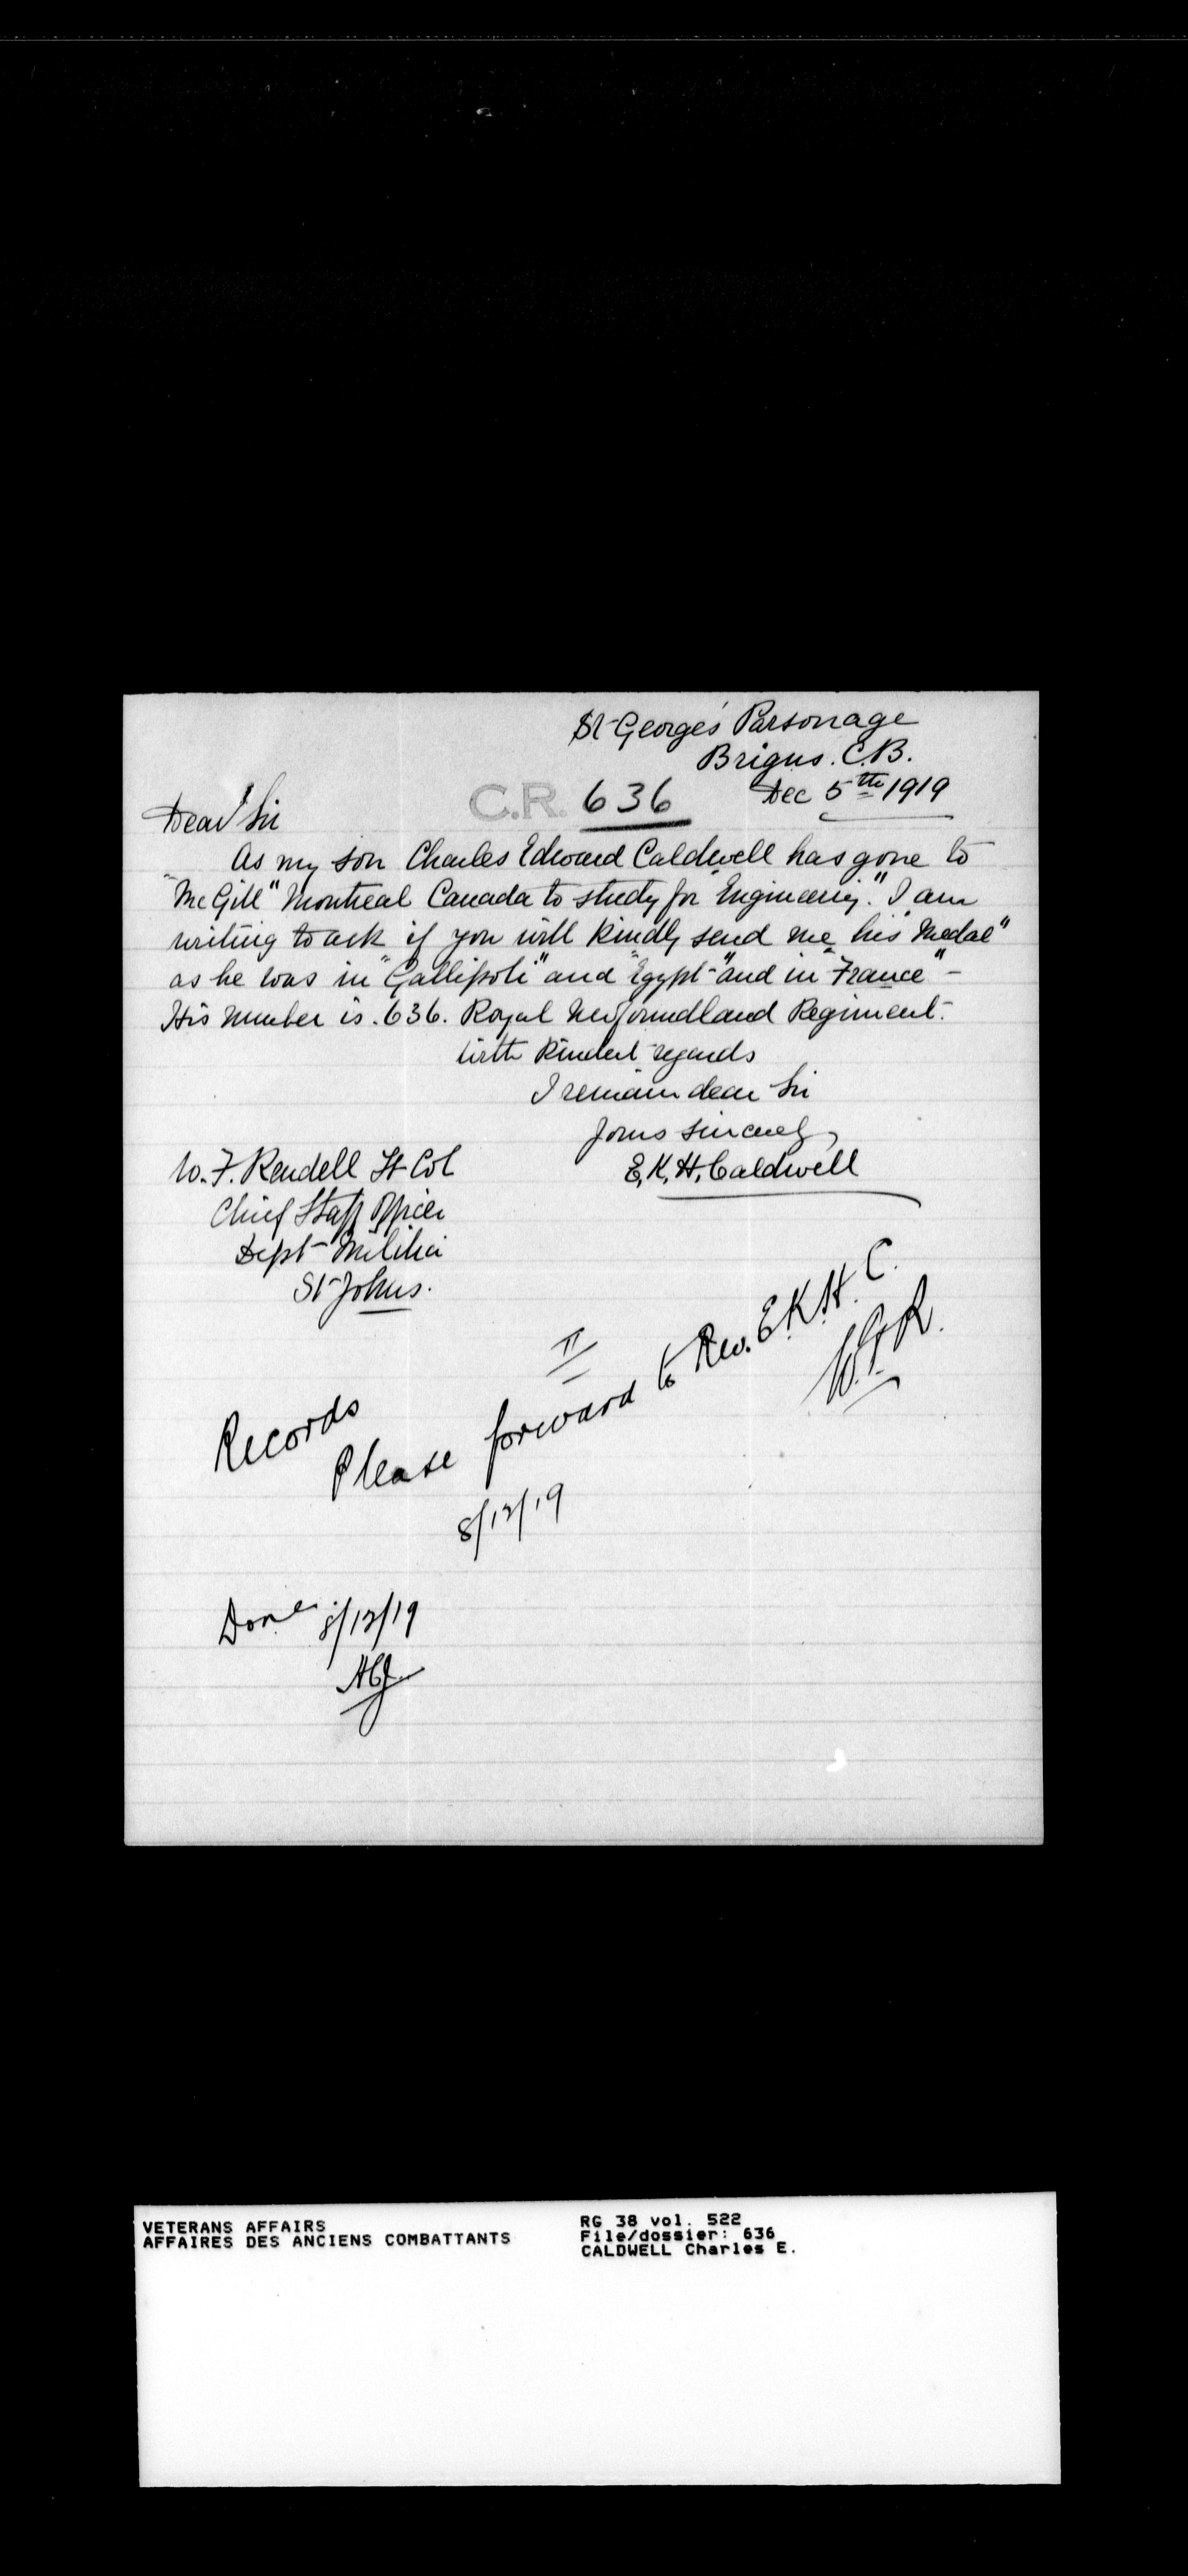 St George's Parsonage
Brigus. C.B.
C.R. 636
Dec 5th 1919
Dear Sir
As my son Charles Edward Caldwell has gone to
"McGill" Montreal Canada to study for "Engineering." I am
writing to ask if you will kindly send me his "Medal"
as he was in "Gallipoli" and "Egypt" and in "France" -
His number is. 636. Royal Newfoundland Regiment.
With kindest regards
I remain dear Sir
Yours sincerely
E.K.H. Caldwell
W. F. Rendell Lt Col
Chief Staff Officer
Dept Militia
St Johns.
II
Records
Please forward to Rev. E.K.H.C.
W.F.R.
8/12/19
Done 8/12/19
VETERANS AFFAIRS
AFFAIRES DES ANCIENS COMBATTANTS
RG 38 vol. 522
File/dossier: 636
CALDWELL Charles E.